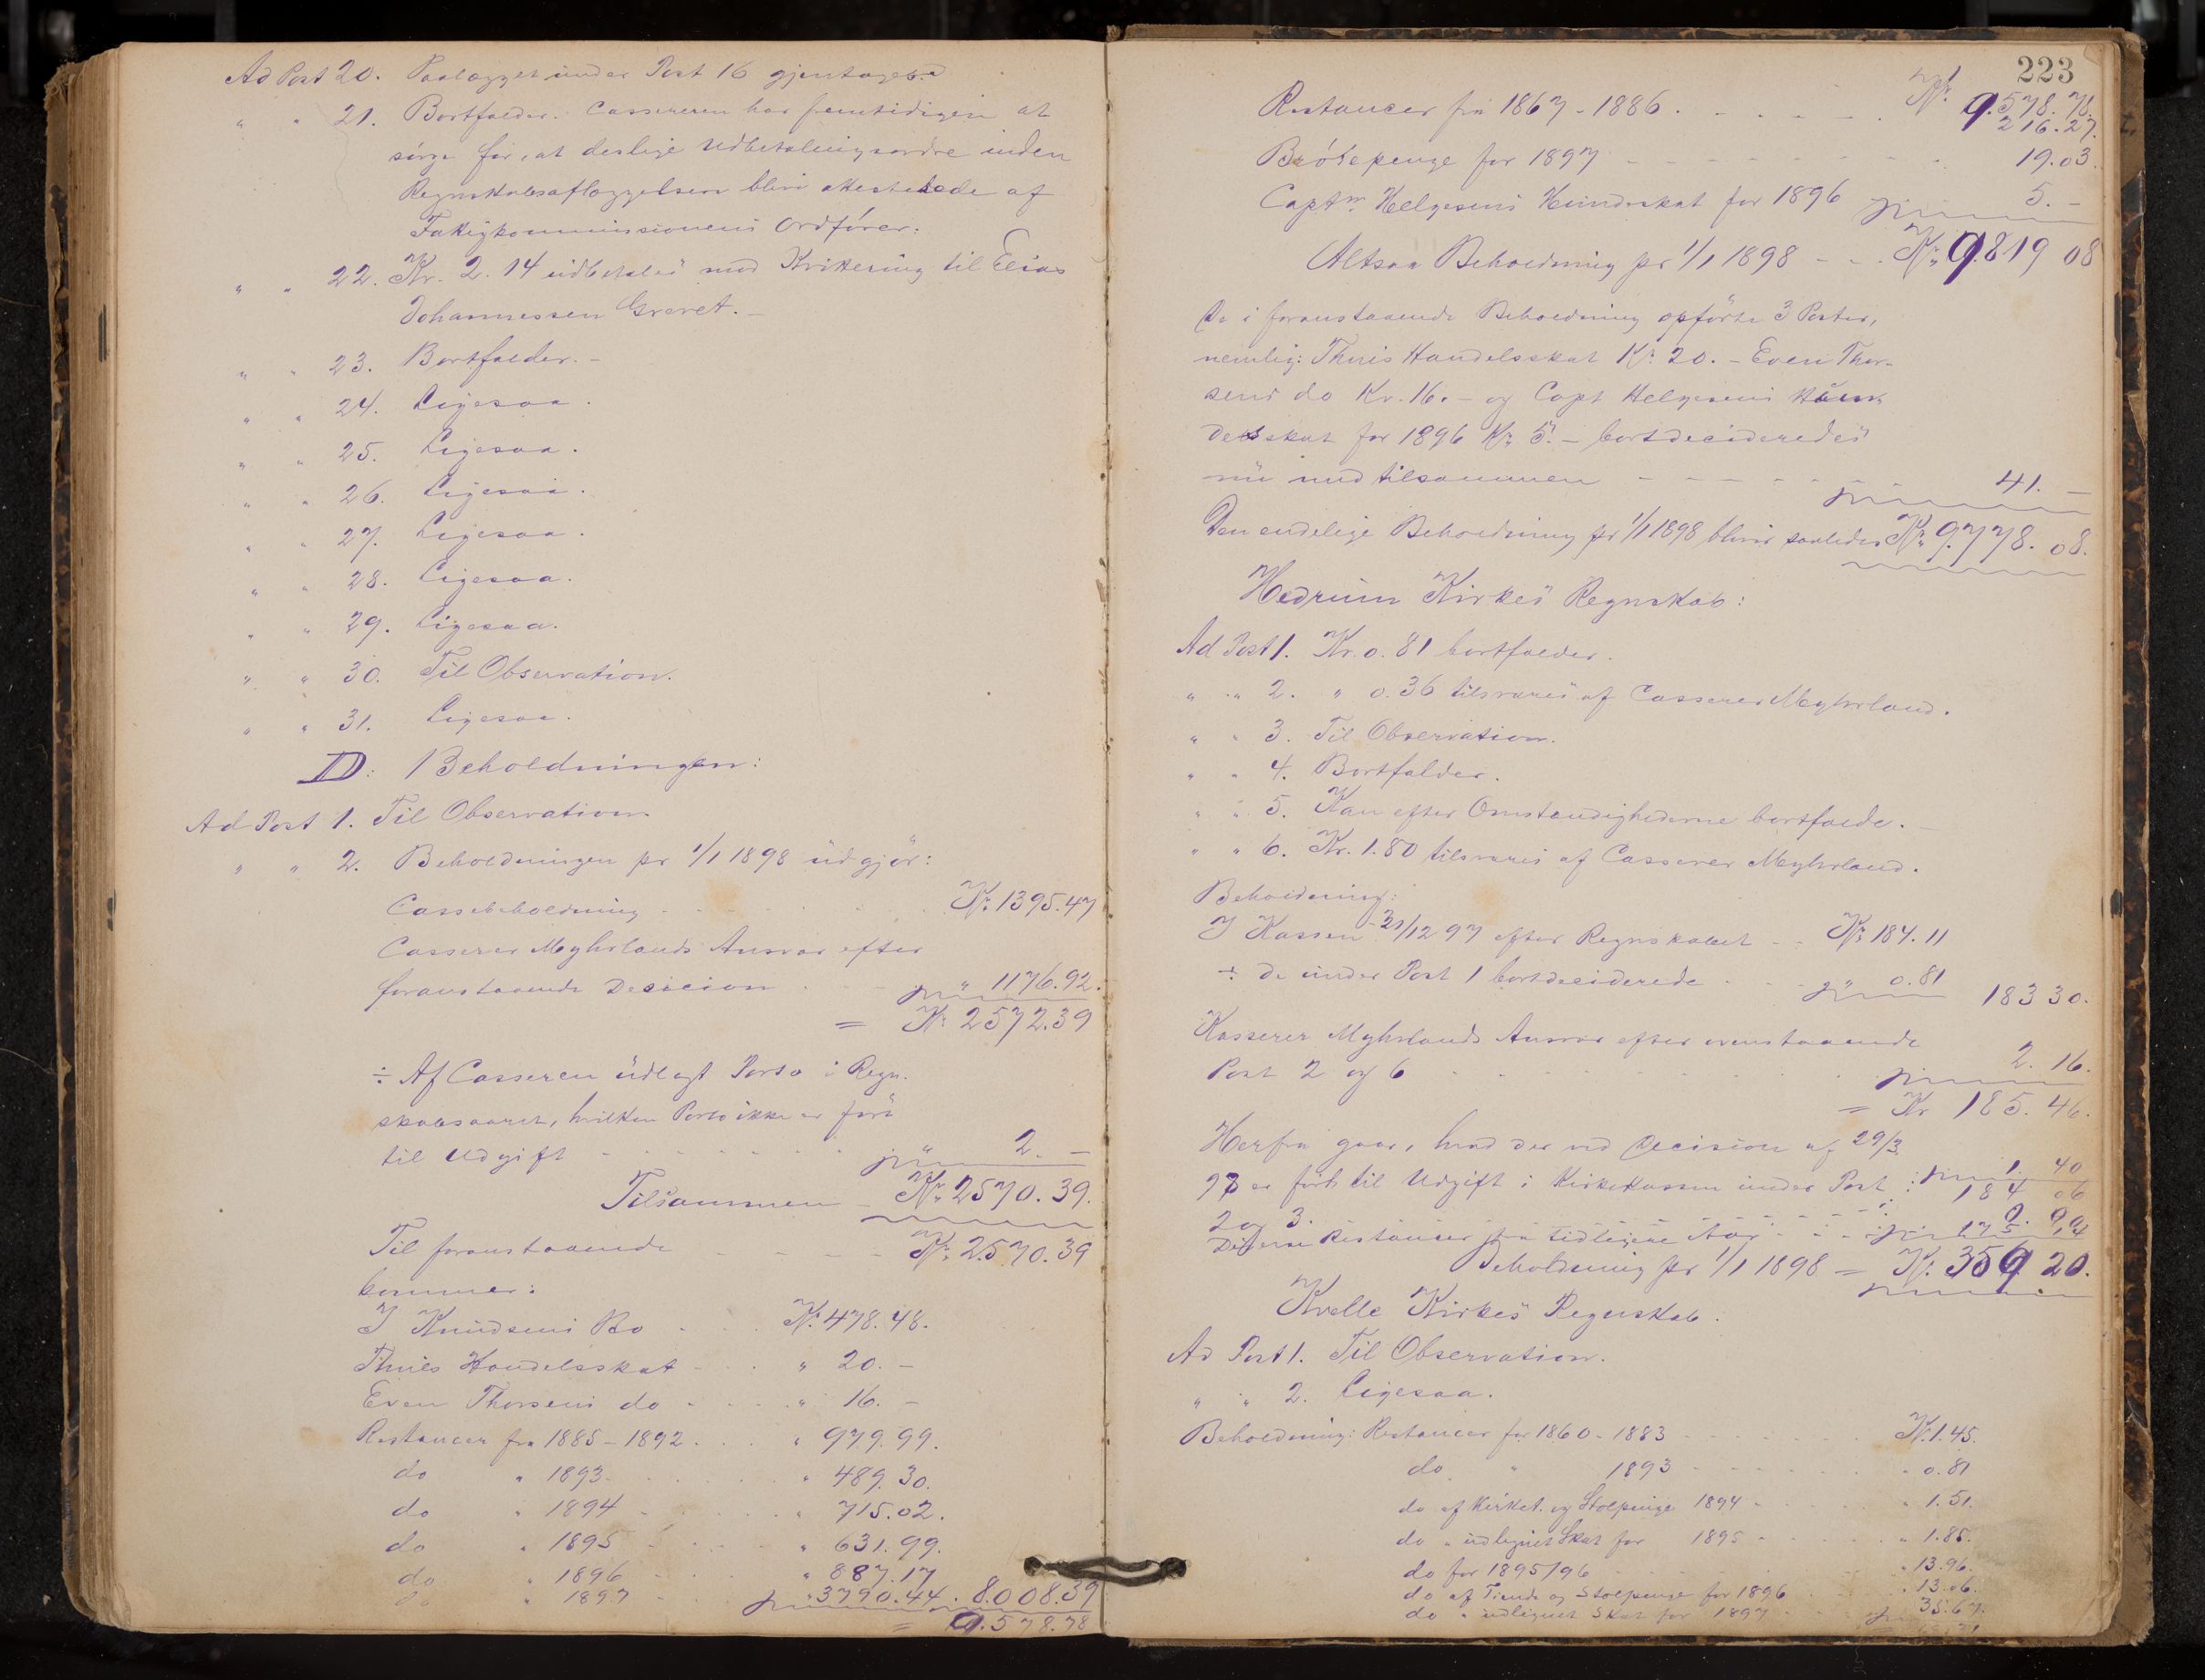 Ad Post 20. Paalægget under Post 16 gjentages.
" " 21. Bortfalder. Cassereren har fremtidigen at
sørge for, at deslige Udbetalingsordre inden
Regnskabsaflæggelsen bliver attesterede af
Fattigkommissionens Ordfører.
" " 22. Kr. 2.14 udbetales mod Kvittering til Elias
Johannessen Gravet.
" " 23. Bortfalder. -
" " 24. Ligesaa.
" " 25. Ligesaa.
" " 26. Ligesaa.
" " 27. Ligesaa.
" " 28. Ligesaa.
" " 29. Ligesaa.
" " 30. Til Observation.
" " 31. Ligesaa.
D: Beholdningen:
Ad Post 1. Til Observation
" " 2. Beholdningen pr 1/1 1898 udgjør:
Cassebeholdning Kr. 1395.47
Casserer Myhrlands Ansvar efter
foranstaaende Decision " 1176.92.
= Kr. 2572.39
÷ Af Casseren udlagt Porto i Regn-
skabsaaret, hvilken Porto ikke er ført
til Udgift " 2. -
Tilsammen Kr. 2570.39.
Til foranstaaende Kr. 2570.39
kommer:
I Knudsens Bo Kr. 478.48.
Thuis Handelsskat " 20. -
Even Thorsens do " 16. -
Restancer fra 1885-1892 " 979.99.
do " 1893 " 489.30.
do " 1894 " 715.02.
do " 1895 " 631.99.
do " 1896 " 887.17
do " 1897 " 3790.44. 8.008.39
= 9.578.78
223
Kr. 9.578.78.
Restancer fra 1867-1886. 216.27.
Brøtepenge for 1897 19.03.
Captn. Helgesens Hundeskat for 1896 5. -
Altsaa Beholdning pr 1/1 1898 Kr. 9.819 08
De i foranstaaende Beholdning opførte 3 Poster,
nemlig: Thuis Handelsskat Kr. 20. - Even Thor-
sens do Kr. 16. - og Capt Helgesens Hun-
deskat for 1896 Kr. 5. - bortdecideredes
nu med tilsammen 41. -
Den endelige Beholdning pr 1/1 1898 bliver saaledes Kr. 9.778. 08.
Hedrum Kirkes Regnskab:
Ad Post 1. Kr. 0.81 bortfalder.
" " 2. " 0.36 tilsvares af Casserer Myhrland.
" " 3. Til Observation.
" " 4. Bortfalder.
" " 5. Kan efter Omstendighederne bortfalde. -
" " 6. Kr. 1.80 tilsvares af Casserer Myhrland.
Beholdning:
I Kassen 31/12 97 efter Regnskabet Kr. 184.11
÷ de under Post 1 bortdeciderede " 0.81 183 30.
Kasserer Myhrlands Ansvar efter ovenstaaende
Post 2 og 6 2. 16.
= Kr 185. 46.
Herfra gaar, hvad der ved Decision af 29/3
97 er ført til Udgift i Kirkekassen under Post 1. 40
2 og 3. 184 06
Diverse Restancer fra tidligere Aar
Beholdning pr 1/1 1898 = Kr. 359 20.
Kvelle Kirkes Regnskab.
Ad Post 1. Til Observation.
" " 2. Ligesaa.
Beholdning: Restancer for 1860-1883 Kr. 1.45.
do " 1893 " 0.81
do af Kirket. og Stolpenge 1894 " 1.51.
do " udlignet Skat for 1895 " 1.85.
do for 1895/96 " 13.96.
do af Tiende og Stolpenge for 1896 " 13.06.
do " udlignet Skat for 1897 35.67.